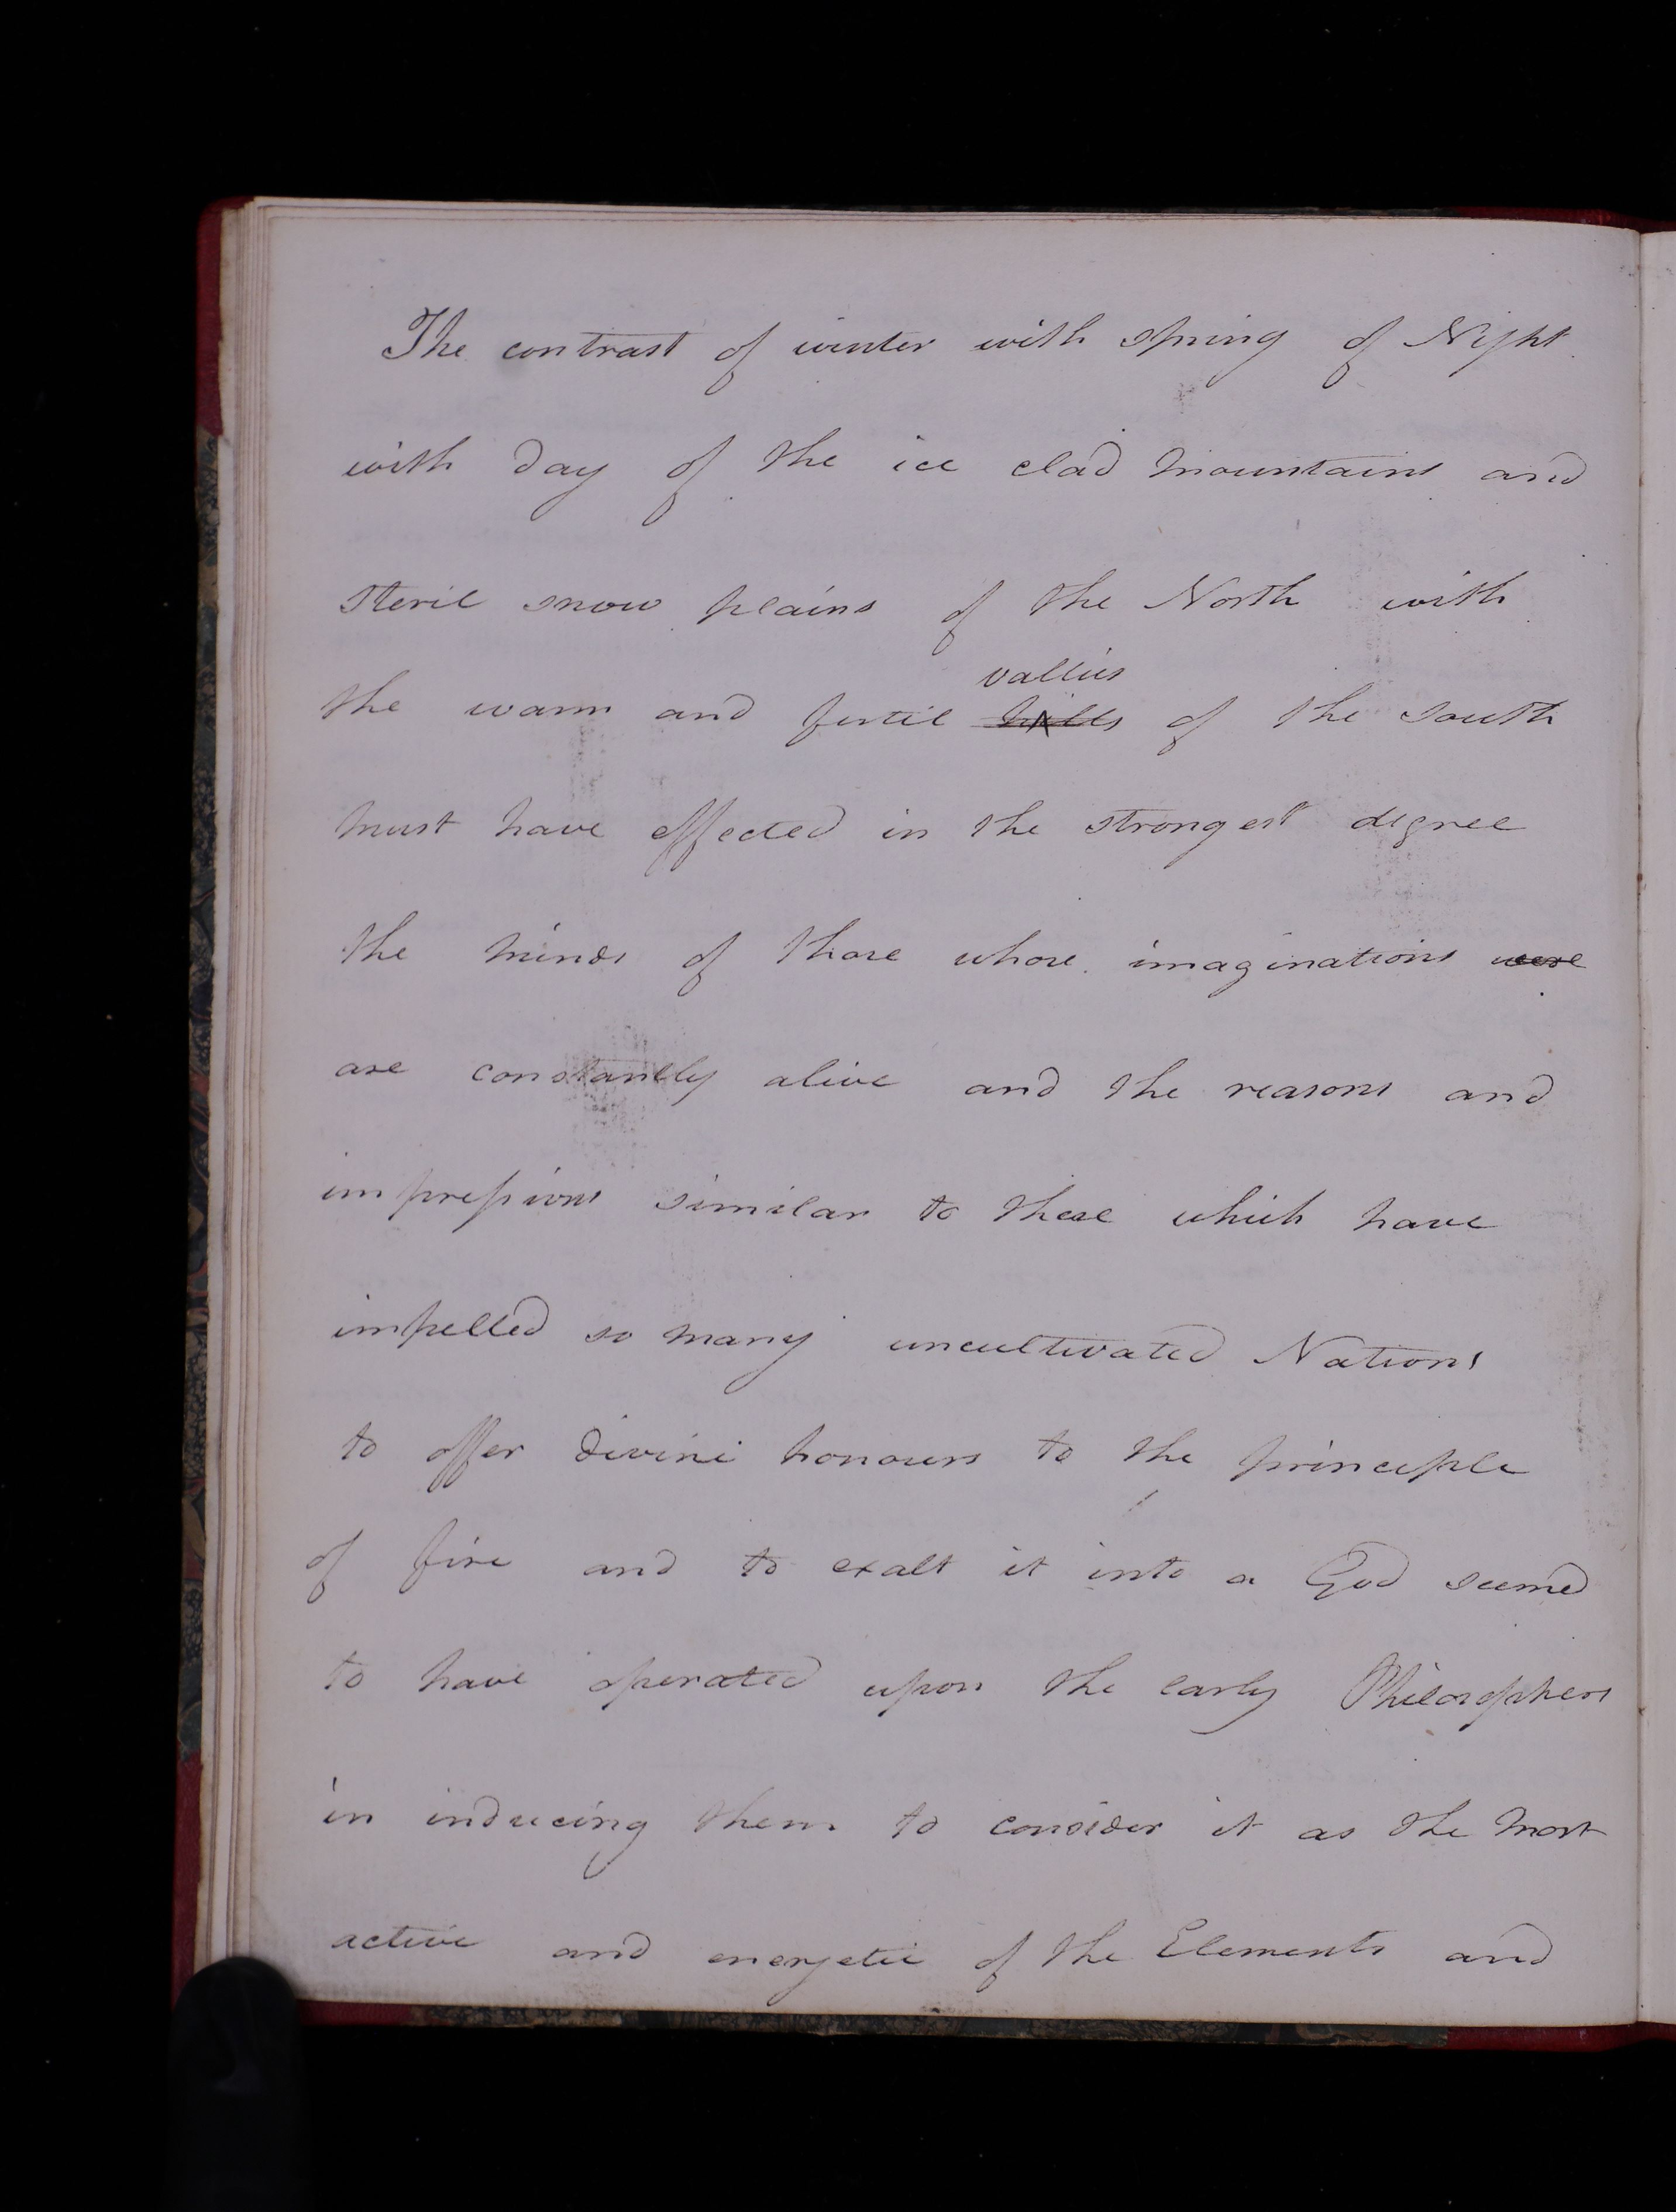 The contrast of winter with spring of Night
with day of the ice clad mountains and
steril snow plains of the North with
vallies
the warm and fertil hills of the south
must have effected in the strongest degree
the minds of those whose imaginations were
are constantly alive and the reasons and
impressions similar to these which have
impelled so many uncultivated Nations
to offer divine honours to the principle
of fire and to exalt it into a God seemed
to have operated upon the early Philosophers
in inducing them to consider it as the most
active and energetic of the Elements and